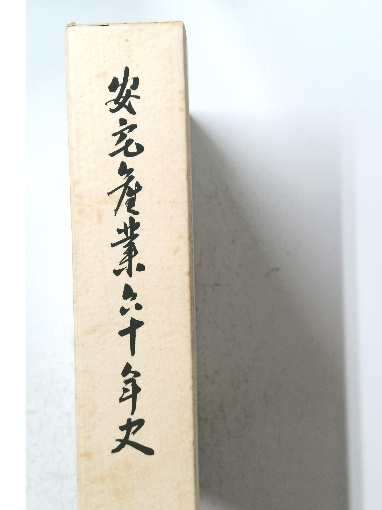 安宅産業六十年史